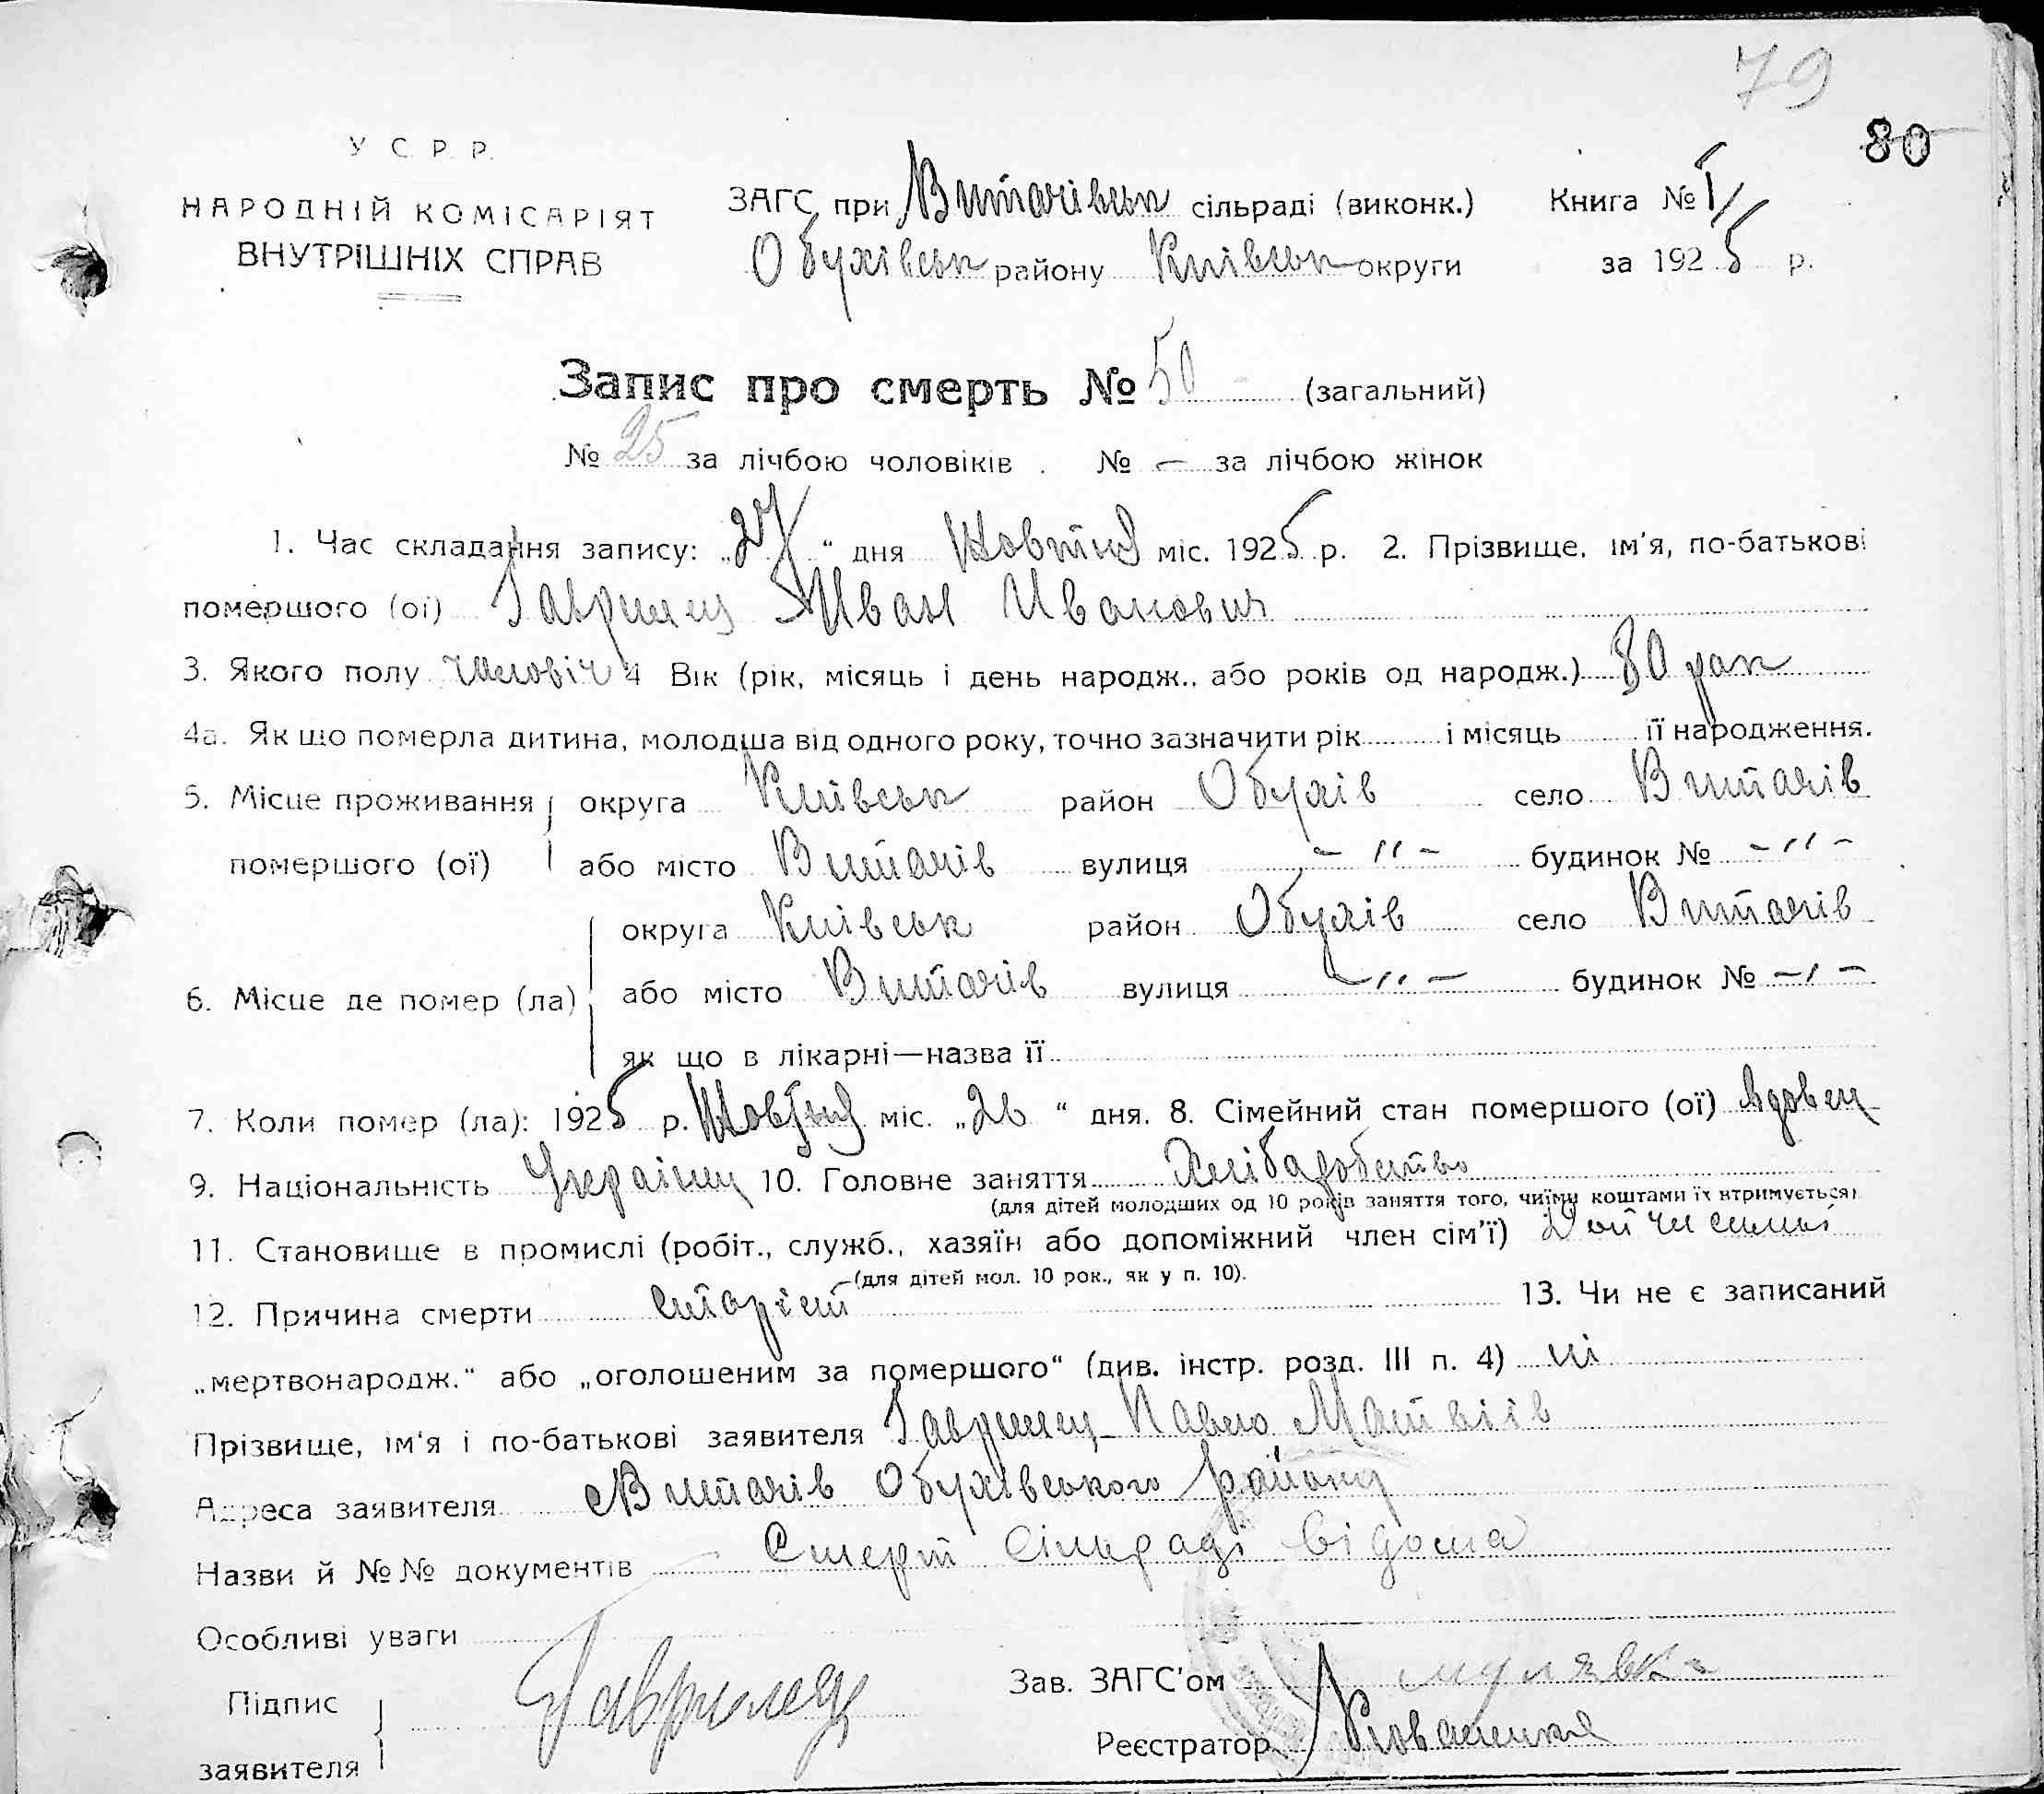 79
80
У С. Р. Р.
НАРОДНІЙ КОМІСАРІЯТ
ВНУТРІШНІХ СПРАВ
ЗАГС при Витачівськ сільраді (виконк.) Книга № 1
Обухівськ району Київськ округи за 1925 р.
Запис про смерть № 50 (загальний)
№ 25 за лічбою чоловіків . № — за лічбою жінок
1. Час складання запису: „27“ дня Жовтня міс. 1925 р. 2. Прізвище, ім'я, по-батькові
помершого (ої) Гаврилец Иван Иванович
3. Якого полу чоловіч 4 Вік (рік, місяць і день народж., або років од народж.) 80 рок
4а. Як що померла дитина, молодша від одного року, точно зазначити рік і місяць її народження.
5. Місце проживання округа Київськ район Обухів село Витачів
помершого (ої) або місто Витачів вулиця - " - будинок № - " -
округа Київськ район Обухів село Витачів
6. Місце де помер (ла) або місто Витачів вулиця - " - будинок № - ' -
як що в лікарні—назва її
7. Коли помер (ла): 1925 р. Жовтня міс. „26“ дня. 8. Сімейний стан помершого (ої) вдовец
9. Національність Українец 10. Головне заняття Хлібаробство
(для дітей молодших од 10 років заняття того, чиїми коштами їх втримується)
11. Становище в промислі (робіт., служб., хазяїн або допоміжний член сім'ї)
(для дітей мол. 10 рок., як у п. 10).
12. Причина смерти старіст 13. Чи не є записаний
„мертвонародж.“ або „оголошеним за помершого“ (див. інстр. розд. III п. 4) ні
Прізвище, ім'я і по-батькові заявителя Гаврилец Павло Матвіів
Адреса заявителя Витачів Обухівського району
Назви й №№ документів Смерт Сільраді відома
Особливі уваги
Підпис
заявителя Гаврилец
Зав. ЗАГС'ом
Реєстратор